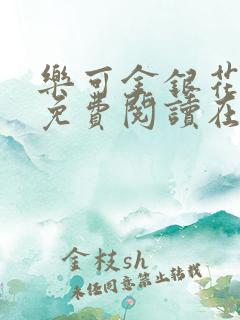 樂可金銀花
免費閱讀在
金枝sh
未经同意禁止转载